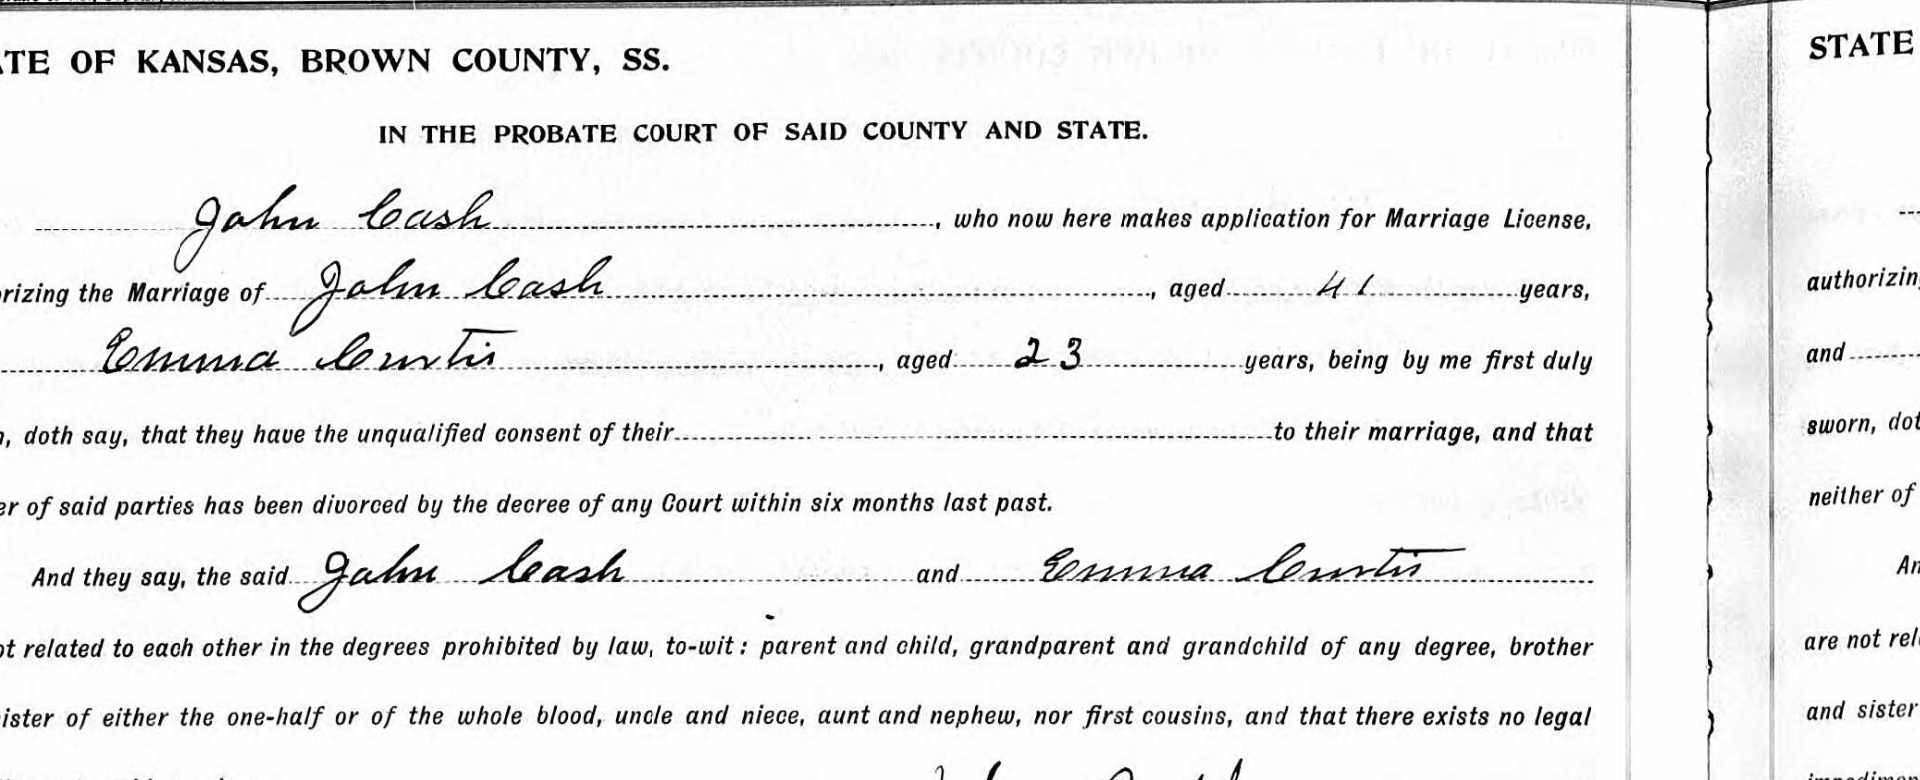 ATE OF KANSAS, BROWN COUNTY, SS.
IN THE PROBATE COURT OF SAID COUNTY AND STATE.
John Cash, who now here makes application for Marriage License,
orizing the Marriage of John Cash, aged 41 years,
Emma Curtis, aged 23 years, being by me first duly
n, doth say, that they have the unqualified consent of their to their marriage, and that
er of said parties has been divorced by the decree of any Court within six months last past.
And they say, the said John Cash and Emma Curtis
ot related to each other in the degrees prohibited by law, to-wit: parent and child, grandparent and grandchild of any degree, brother
ister of either the one-half or of the whole blood, uncle and niece, aunt and nephew, nor first cousins, and that there exists no legal
STATE
authorizing
and
sworn, dot
neither of
An
are not rel
and sister